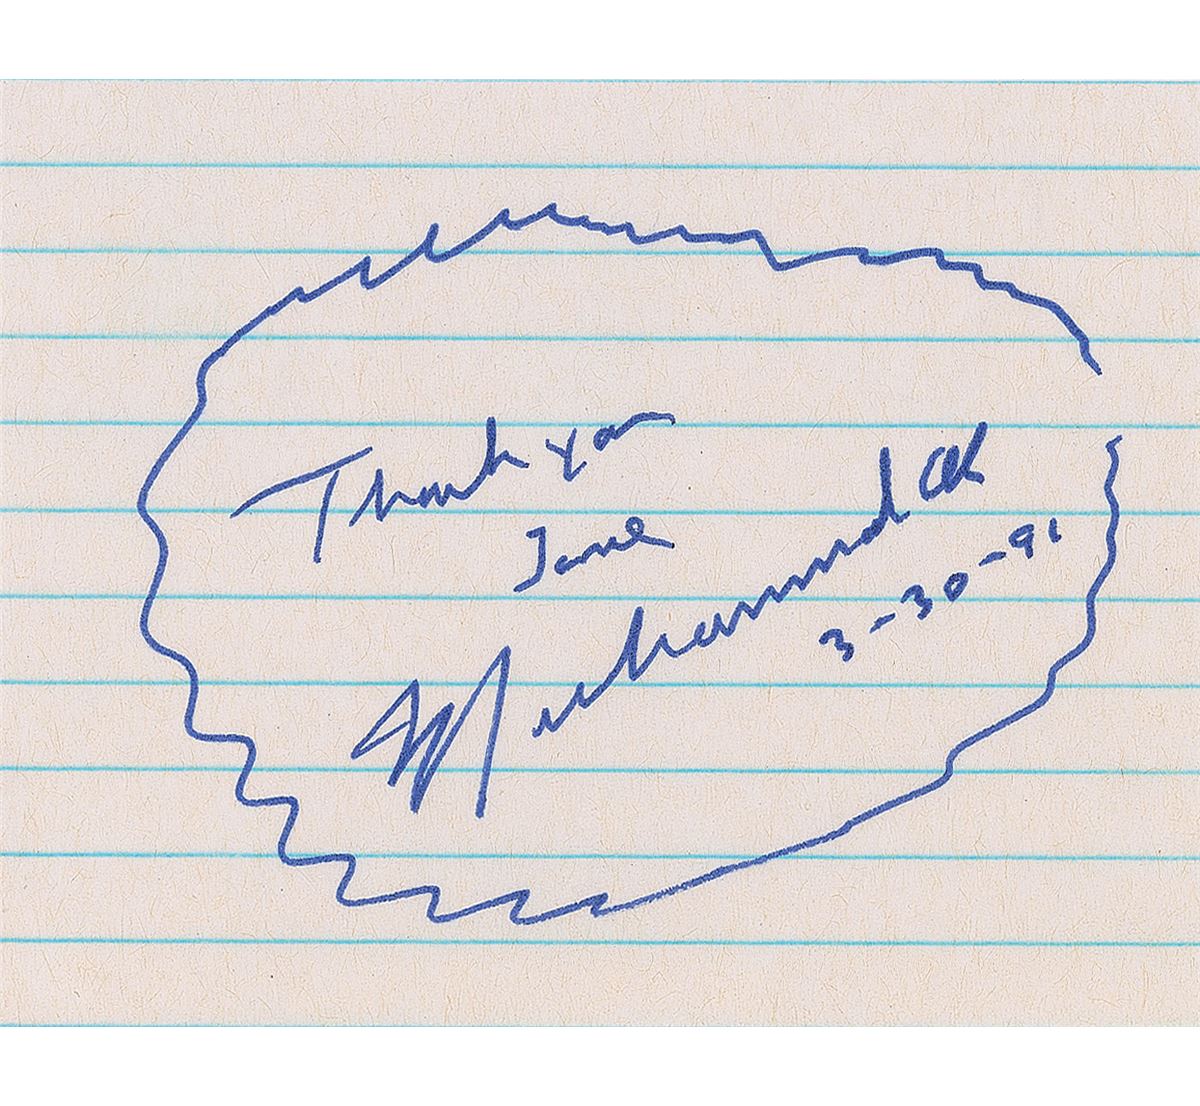 Thank you
Jane
Muhammad Ali
3-30-91